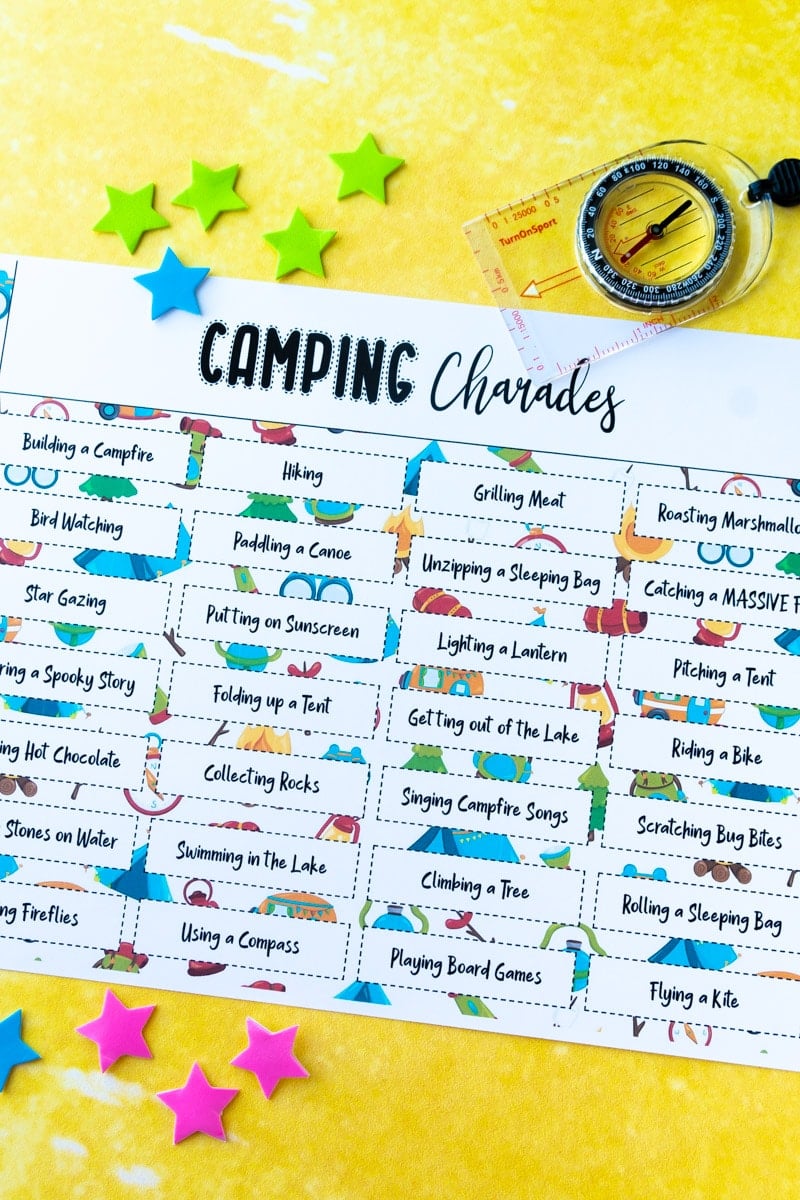 TurnOnSport
1:25000
1:15000
CAMPING Charades
Building a Campfire
Hiking
Grilling Meat
Roasting Marshmallo
Bird Watching
Paddling a Canoe
Unzipping a Sleeping Bag
Catching a MASSIVE F
Star Gazing
Putting on Sunscreen
Lighting a Lantern
Pitching a Tent
ring a Spooky Story
Folding up a Tent
Getting out of the Lake
Riding a Bike
ing Hot Chocolate
Collecting Rocks
Singing Campfire Songs
Scratching Bug Bites
Stones on Water
Swimming in the Lake
Climbing a Tree
Rolling a Sleeping Bag
ng Fireflies
Using a Compass
Playing Board Games
Flying a Kite